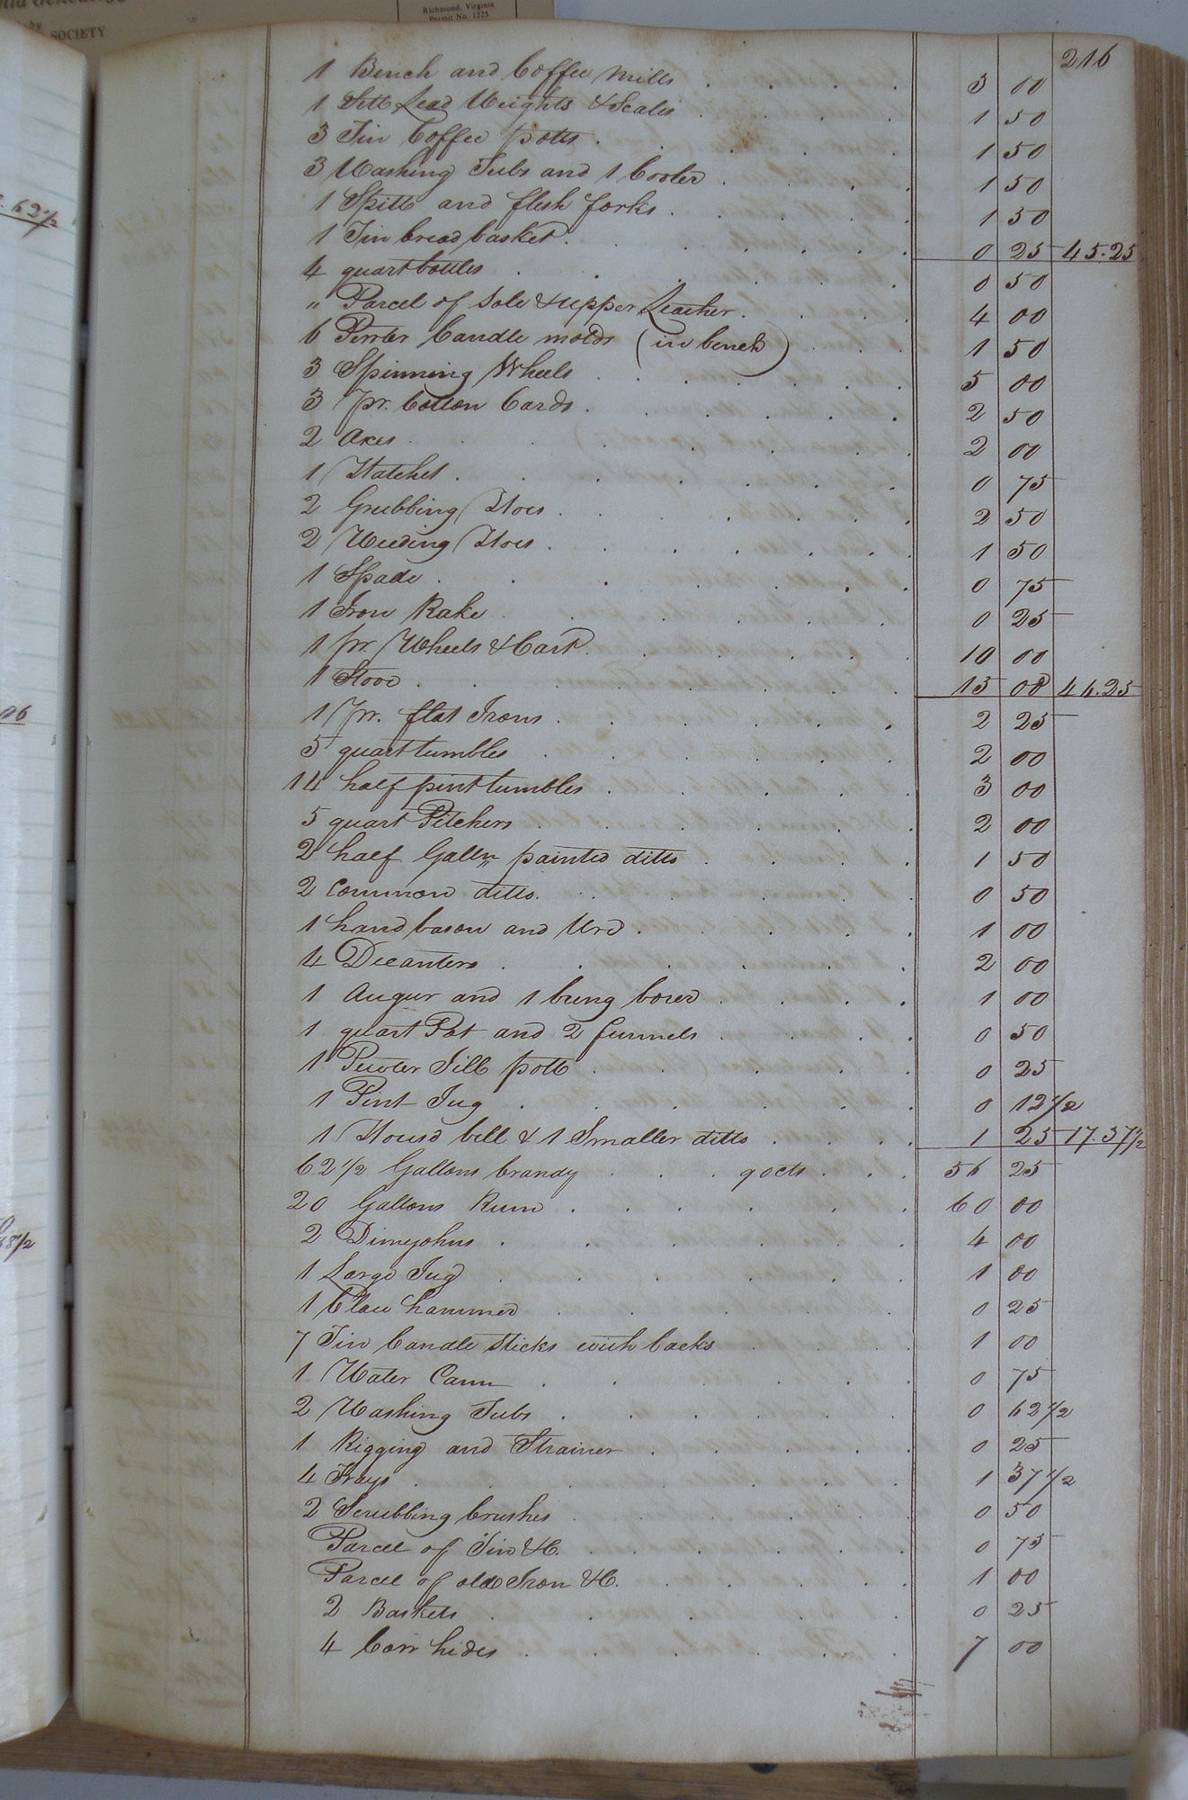 Richmond, Virginia
Permit No. 1225
SOCIETY
216
1 Bench and Coffee Mills . . . . 3 00
1 Sett Lead Weights & Scales . . . . 1 50
3 Tin Coffee potts . . . . 1 50
3 Washing Tubs and 1 Cooler . . . 1 50
1 Spitt and flesh forks . . . . 1 50
1 Tin bread basket . . . . 0 25 45.25
4 quart bottles . . . . 0 50
" Parcel of Sole & upper Leather . . . 4 00
6 Pewter Candle molds (in bench) . . 1 50
3 Spinning Wheels . . . . 5 00
3 pr. Cotton Cards . . . . 2 50
2 Axes . . . . 2 00
1 Hatchet . . . . 0 75
2 Grubbing Hoes . . . . 2 50
2 Weeding Hoes . . . . 1 50
1 Spade . . . . 0 75
1 Iron Rake . . . . 0 25
1 pr. Wheels & Cart . . . . 10 00
1 Stove . . . . 15 00 46.25
1 pr. flat Irons . . . . 2 25
5 quart tumbles . . . . 2 00
14 half pint tumbles . . . . 3 00
5 quart Pitchers . . . . 2 00
2 half Galln painted ditto . . . 1 50
2 Common ditto . . . . 0 50
1 hand bason and Urn . . . . 1 00
4 Decanters . . . . 2 00
1 Augur and 1 bung borer . . . 1 00
1 quart Pot and 2 funnels . . . 0 50
1 Pewter Jill pott . . . . 0 25
1 Pint Jug . . . . 0 12½
1 House bell & 1 Smaller ditto . . . 1 25 17.37½
62½ Gallons brandy . . 90cts . . 56 25
20 Gallons Rum . . . . 60 00
2 Dimejohns . . . . 4 00
1 Large Jug . . . . 1 00
1 Claw hammer . . . . 0 25
7 Tin Candle sticks with backs . . 1 00
1 Water Cann . . . . 0 75
2 Washing Tubs . . . . 0 62½
1 Rigging and Strainer . . . . 0 25
4 Trays . . . . 1 37½
2 Scrubbing brushes . . . . 0 50
Parcel of Tin &C. . . . . 0 75
Parcel of old Iron &C. . . . . 1 00
2 Baskets . . . . 0 25
4 Cow hides . . . . 7 00